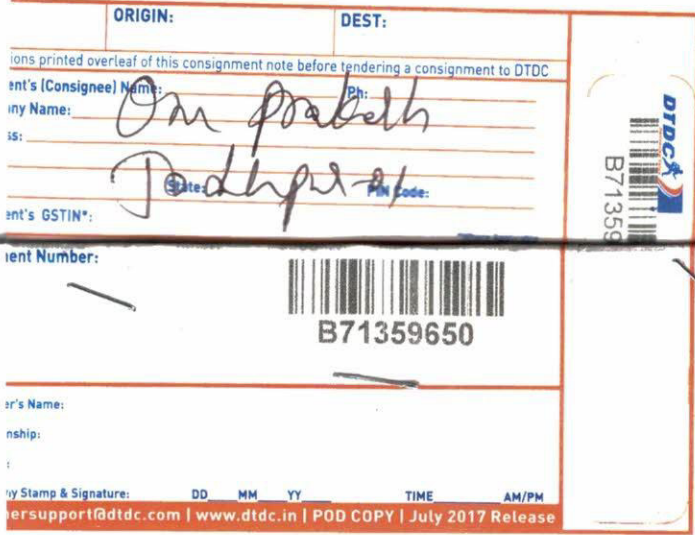 ORIGIN: DEST:
ions printed overleaf of this consignment note before tendering a consignment to DTDC
ent's (Consignee) Name: Ph:
ny Name: Om Prakash
ss:
State: PIN Code:
Jodhpur
ent's GSTIN*:
DTDC
B71359
ent Number:
B71359650
er's Name:
nship:
:
ny Stamp & Signature: DD MM YY TIME AM/PM
ersupport@dtdc.com | www.dtdc.in | POD COPY | July 2017 Release